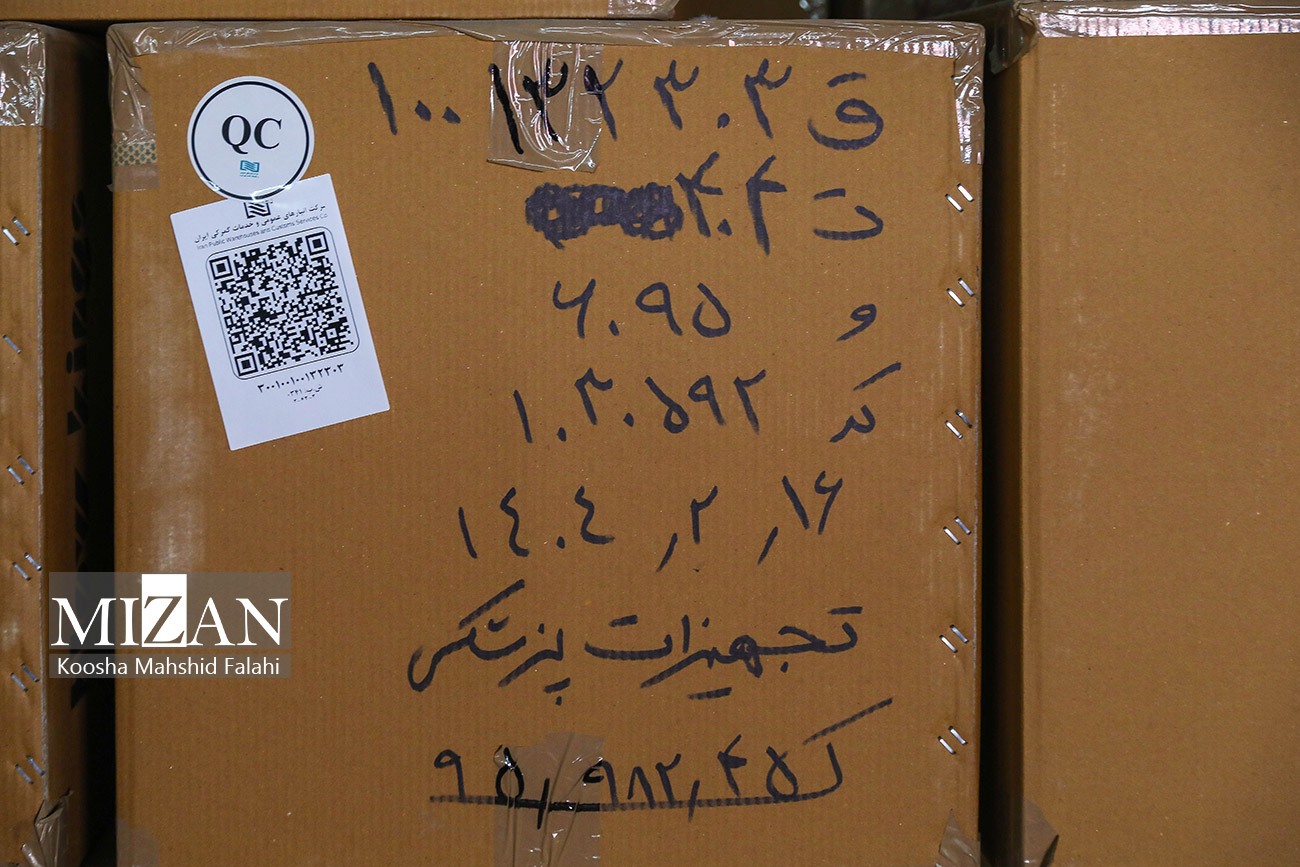 QC
شرکت انبارهای عمومی و خدمات گمرکی ایران
Iran Public Warehouses and Customs Services Co
۳۰۰۱۰۰۱۰۰۱۳۲۳۰۳
ق ۱۰۰۱۳۲۳۰۳
ت ۲۰۴
و ۶۰۹۵
کد ۱۰۳۰۵۹۲
۱۴۰۴٫۲٫۱۶
تجهیزات پزشکی
ک ۹۵٫۹۸۲٫۴۵
MIZAN
Koosha Mahshid Falahi